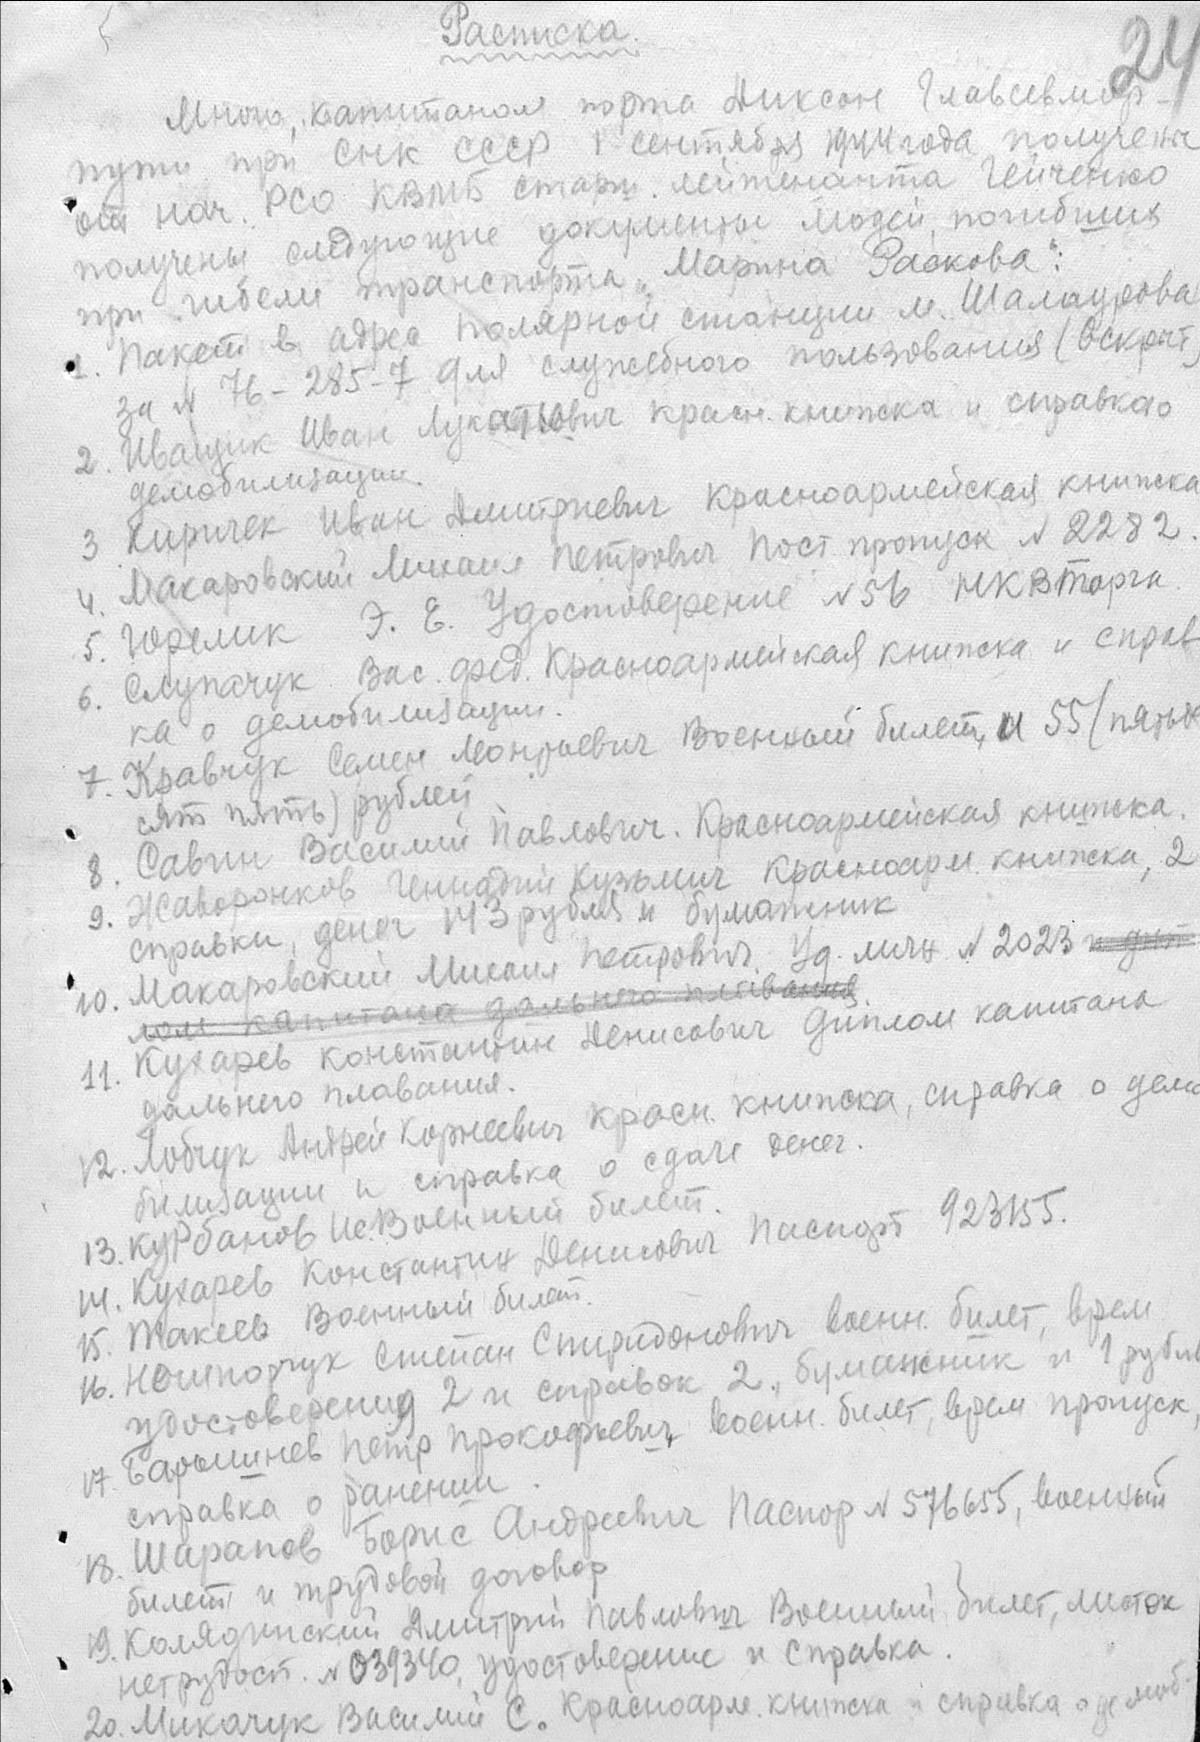 Расписка.
24
Мною, капитаном порта Диксон Главсевмор-
пути при СНК СССР 1 сентября 1944 года получены
от нач. РСО КВМБ старш. лейтенанта Гейченко
получены следующие документы людей, погибших
при гибели транспорта „Марина Раскова":
1. Пакет в адрес Полярной станции м. Шалаурова
за N 76-285-7 для служебного пользования (вскрыт)
2. Иващук Иван Лукатович красн. книжка и справка о
демобилизации.
3 Киричек Иван Дмитриевич Красноармейская книжка
4. Макаровский Михаил Петрович Пост пропуск N 2282.
5. Горелик Э. Е. Удостоверение N 56 НКВТорга.
6. Слупачук Вас. фед. Красноармейская книжка и справ
ка о демобилизации.
7. Кравчук Семен Леонтьевич Военный билет, и 55 (пятьде
сят пять) рублей
8. Савин Василий Павлович. Красноармейская книжка.
9. Жаворонков Геннадий Кузьмич Красноарм. книжка, 2
справки, денег 143 рубля и бумажник
10. Макаровский Михаил Петрович. Уд. личн N 2023 и дип
лом капитана дальнего плавания.
11. Кухарев Константин Денисович Диплом капитана
дальнего плавания.
12. Лобчук Андрей Корнеевич красн. книжка, справка о демо
билизации и справка о сдаче денег.
13. Курбанов Ис. Военный билет.
14. Кухарев Константин Денисович Паспорт 923155.
15. Макеев Военный билет.
16. Нештопорчук Степан Спиридонович военн. билет, врем
удостоверения 2 и справок 2., бумажник и 1 рубль
17. Барышнев Петр Прокофьевич, военн. билет, врем пропуск,
справка о ранении.
18. Шарапов Борис Андреевич Паспор N 576655, военный
билет и трудовой договор
19. Колядинский Дмитрий Павлович Военный билет, листок
нетрудосп. N 039340, удостоверение и Справка.
20. Микачук Василий С. Красноарм. книжка и справка о демоб.